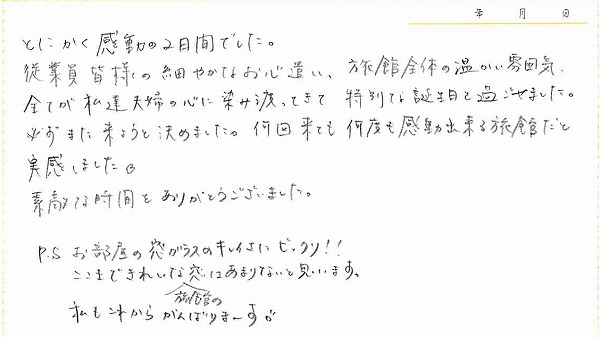 年 月 日
とにかく感動の2日間でした。
従業員皆様の細やかなお心遣い、旅館全体の温かい雰囲気、
全てが私達夫婦の心に染み渡ってきて 特別な誕生日を過ごせました。
必ずまた来ようと決めました。何回来ても何度も感動出来る旅館だと
実感しました。
素敵な時間をありがとうございました。
P.S お部屋の窓ガラスのキレイさにビックリ!!
ここまできれいな窓はあまりないと思います。
旅館の
私もこれからがんばりまーす。